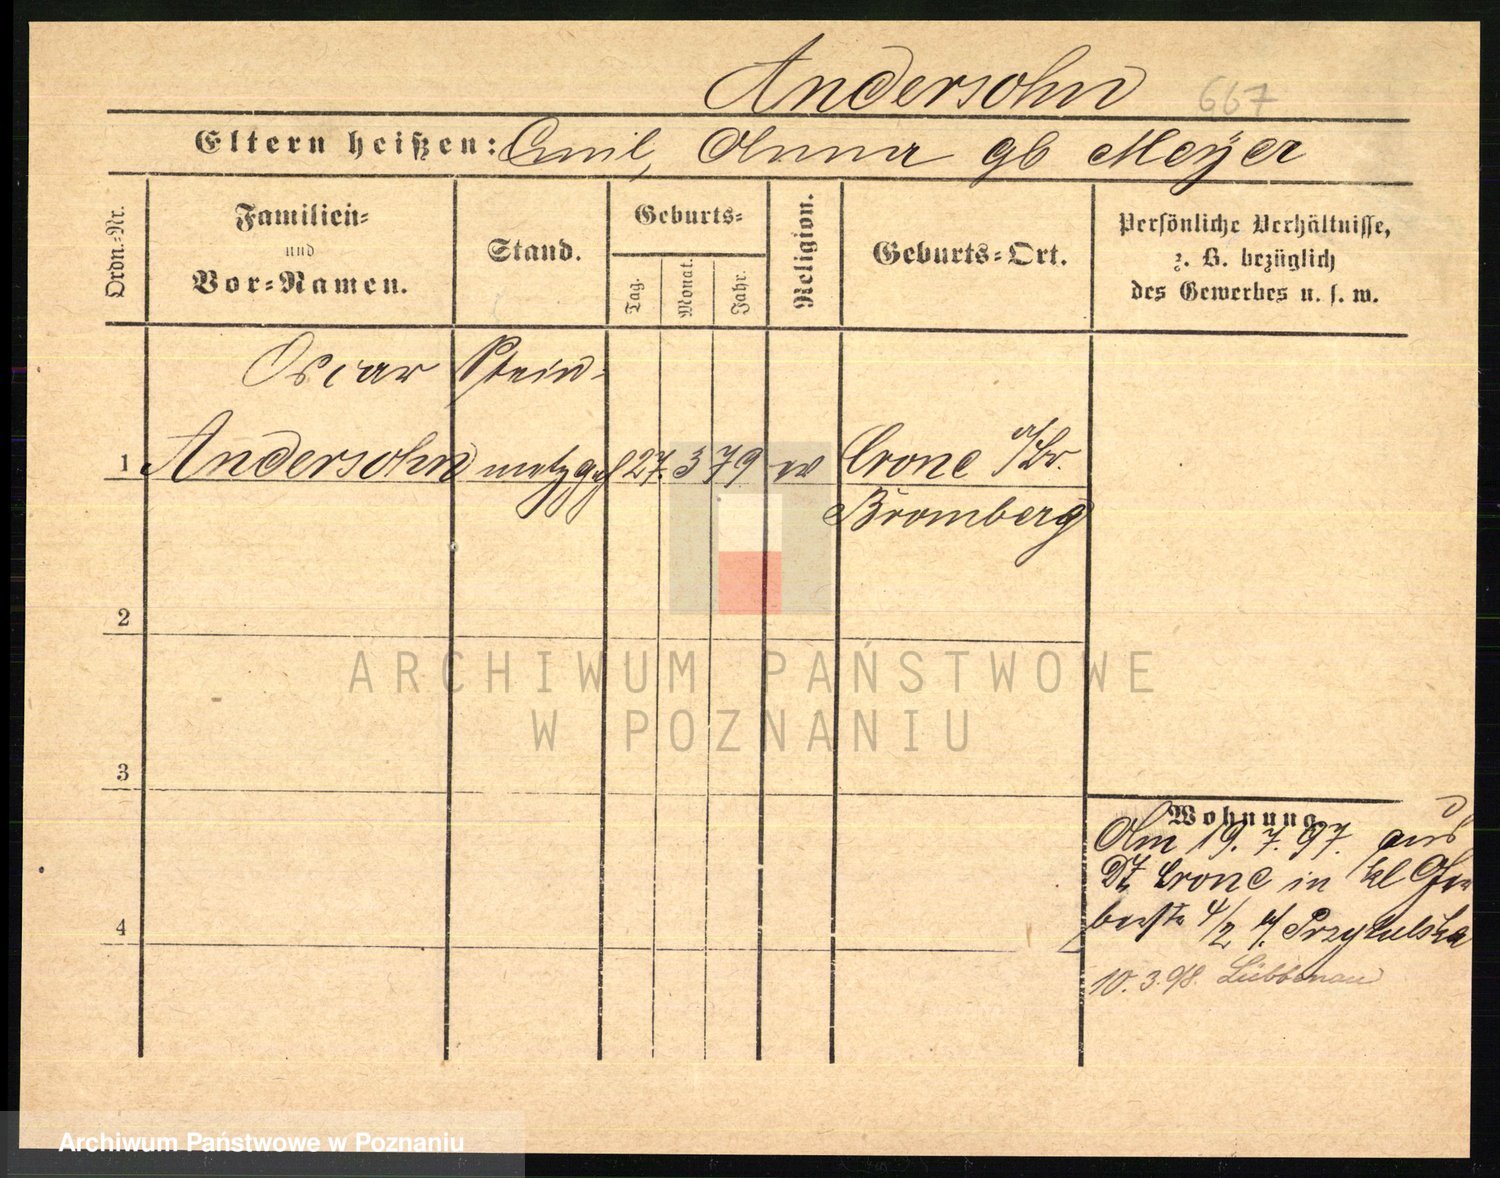 Andersohn 667
Eltern heißen: Emil, Anna gb Meÿer
Ordn.=Nr.
Familien=
und
Vor=Namen.
Stand.
Geburts=
Tag.
Monat.
Jahr.
Religion.
Geburts=Ort.
Persönliche Verhältnisse,
z. B. bezüglich
des Gewerbes u. s. w.
Oscar Stein-
1 Andersohn metzgeh 27. 3 79 ev Crone a/Br.
Bromberg
2
3
4
Wohnung
Am 19. 7. 97. aus
Dt Crone in kl Ger
berstr 4/2 b/. Przybulska
10. 3. 98. Lübbenau
ARCHIWUM PAŃSTWOWE
W POZNANIU
Archiwum Państwowe w Poznaniu